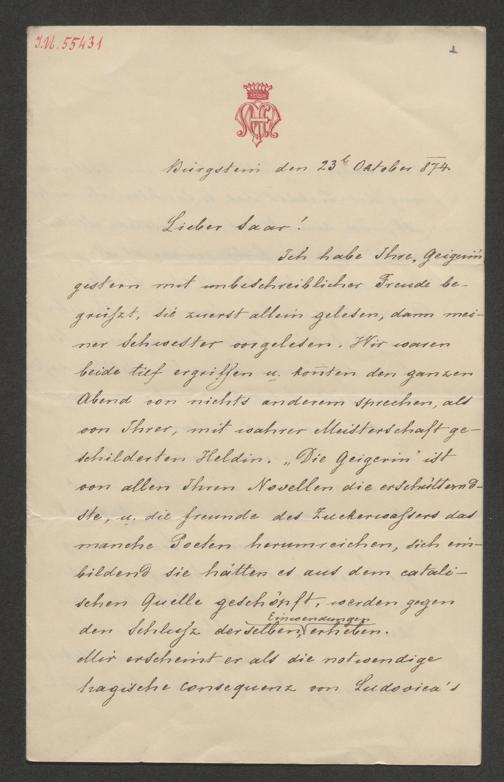 J.N. 55431
1
Bürgstein den 23t Oktober 874.
Lieber Saar!
Ich habe Ihre „Geigerin
gestern mit unbeschreiblicher Freude be-
grüßt, sie zuerst allein gelesen, dann mei-
ner Schwester vorgelesen. Wir waren
beide tief ergriffen u. kon̅ten den ganzen
Abend von nichts anderem sprechen, als
von Ihrer, mit wahrer Meisterschaft ge-
schilderten Heldin. „Die Geigerin" ist
von allen Ihren Novellen die erschütternd-
ste, u. die Freunde des Zuckerwassers das
manche Poeten herumreichen, sich ein-
bildend sie hätten es aus dem catali-
schen Quelle geschöpft, werden gegen
Einwendungen
den Schluß derselben, erheben.
Mir erscheint er als die notwendige
tragische Consequenz von Ludovica's